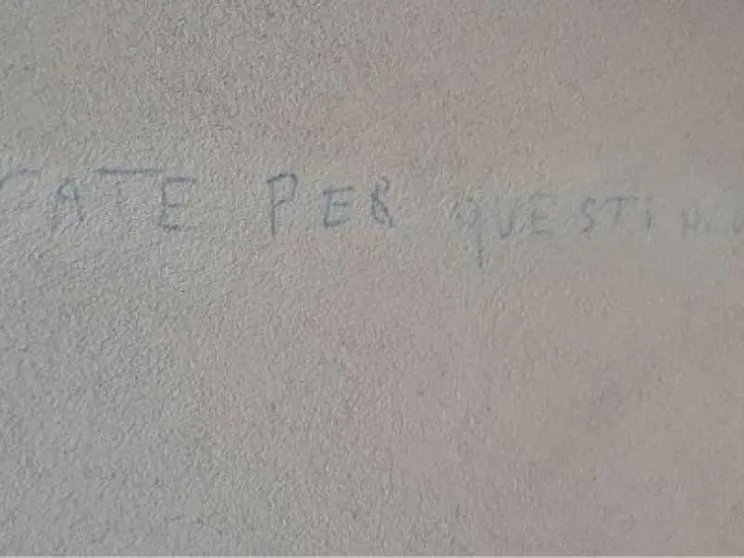 ATE PER QUESTI